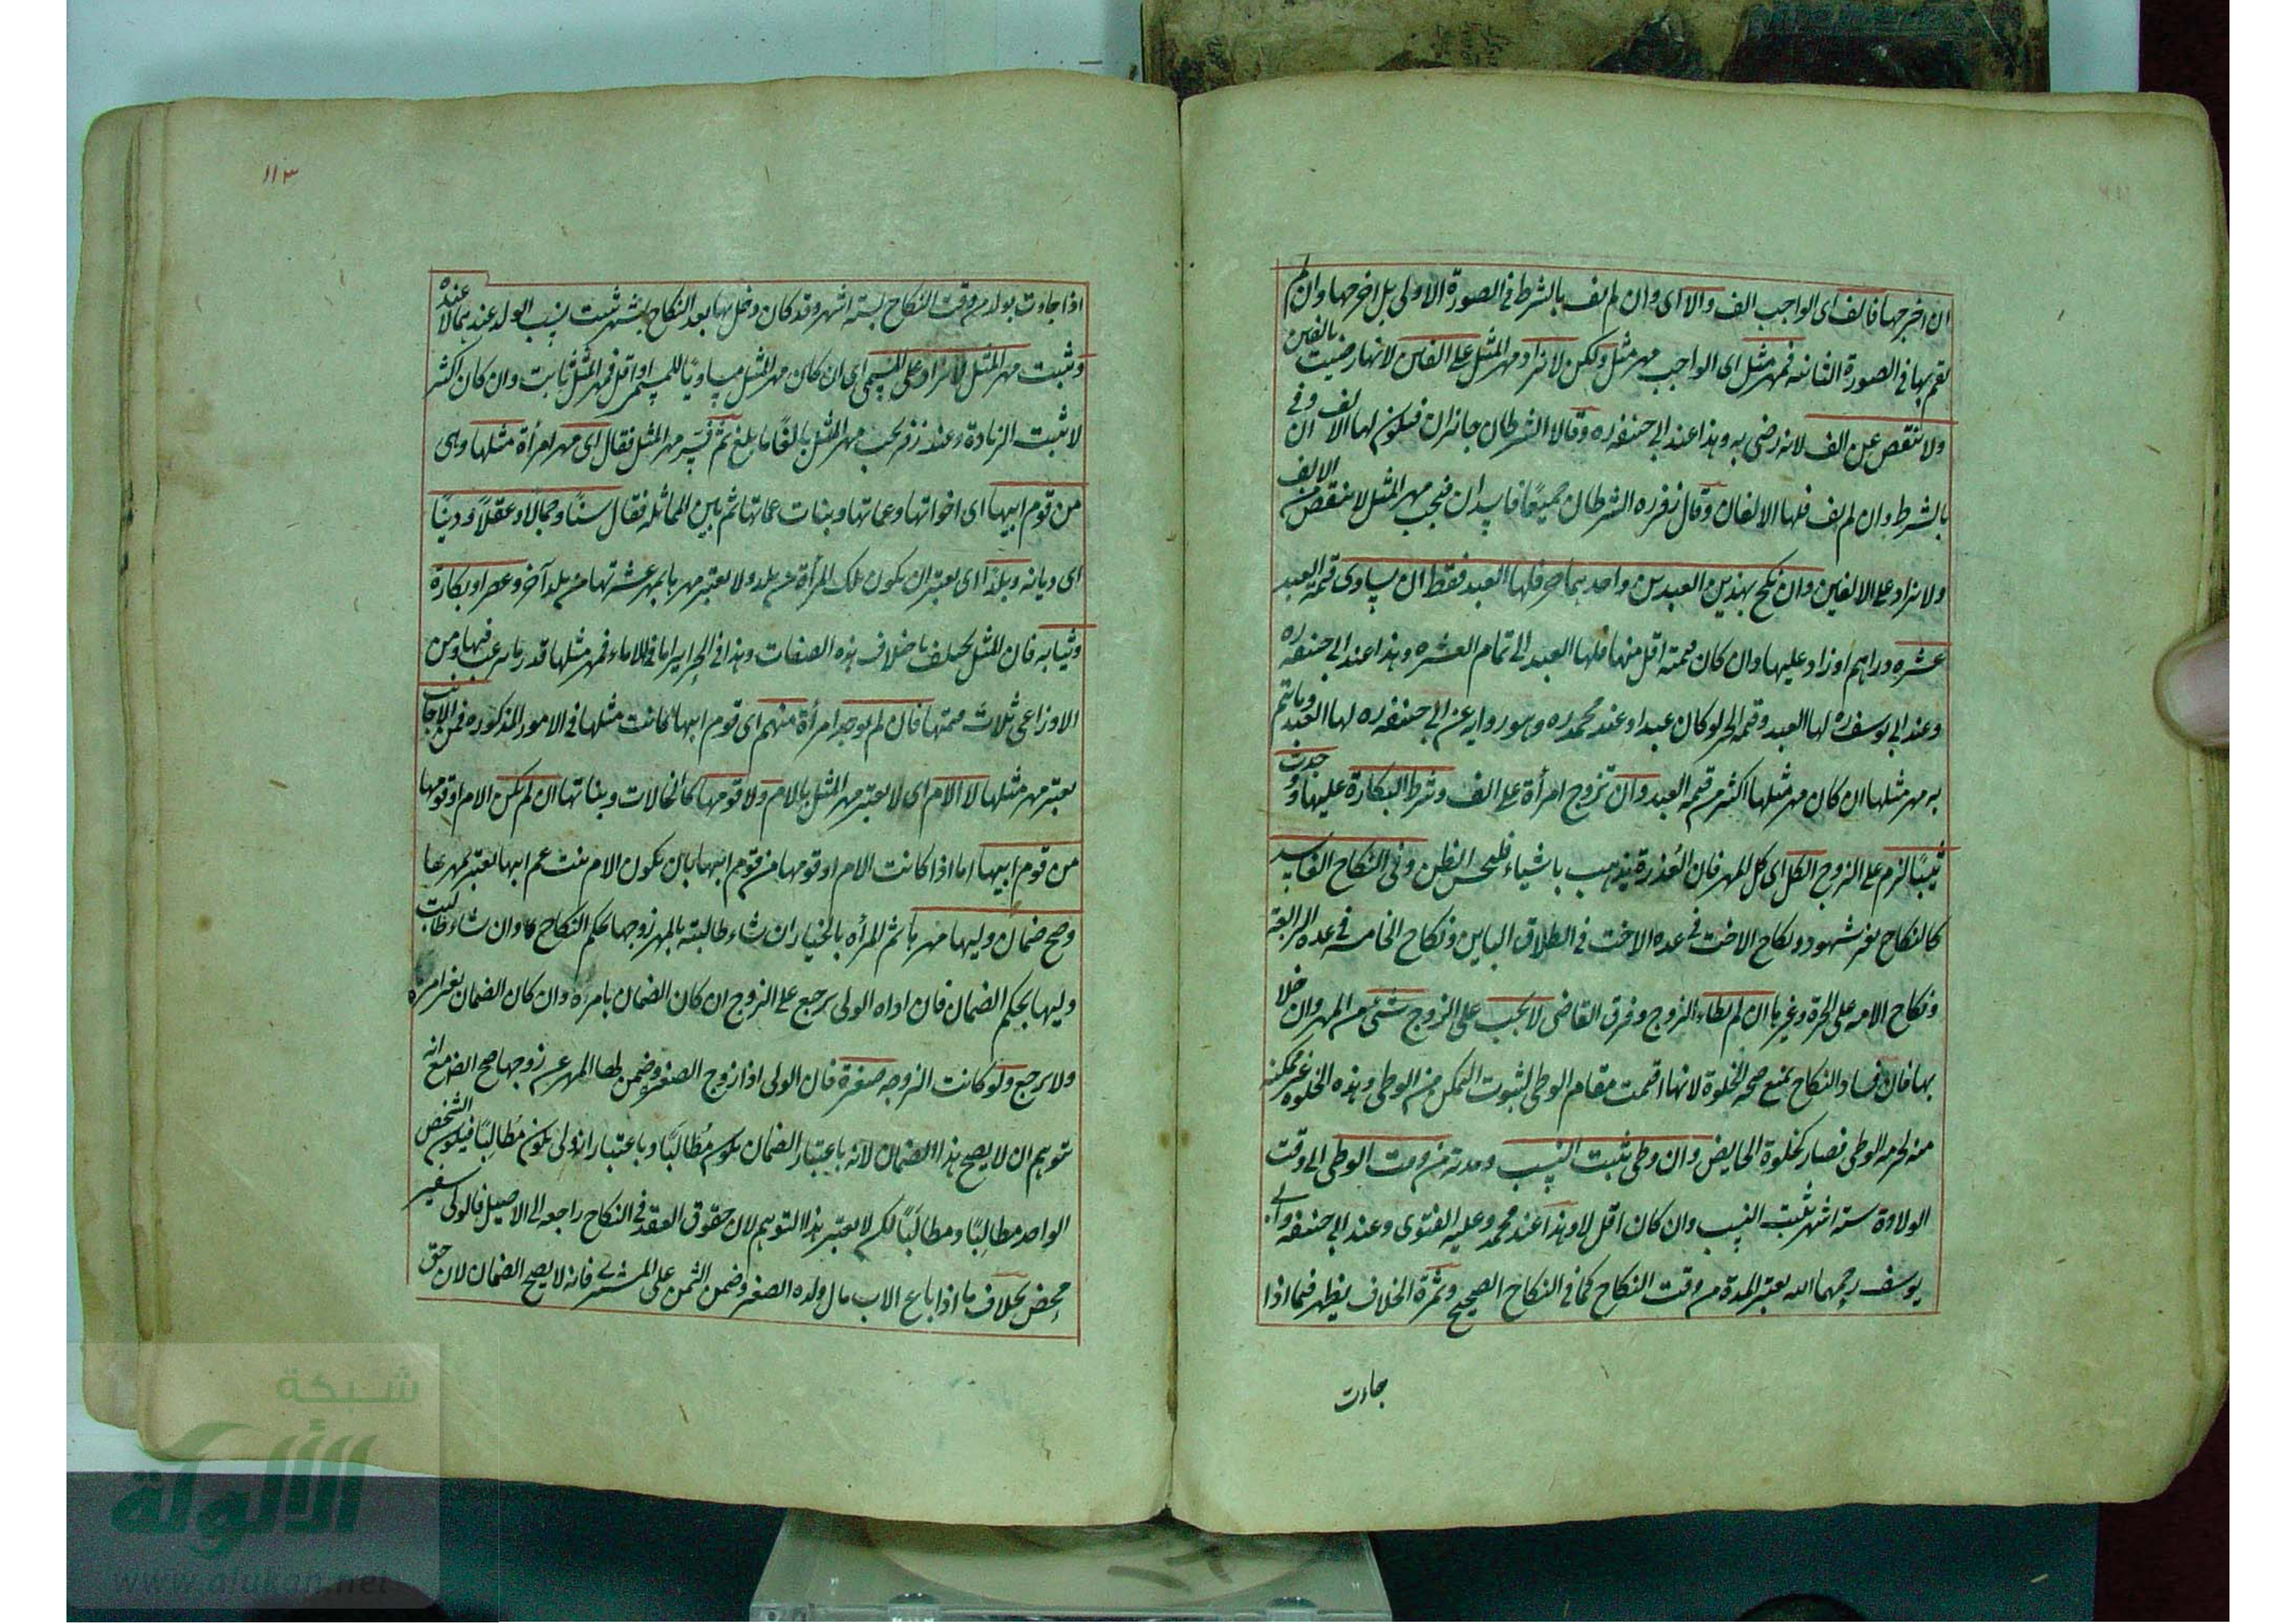 ان اخرجها فالف اى الواجب الف والا اى وان لم يف بالشرط فى الصورة الاولى بل اخرجها وان لم
يقم بها فى الصورة الثانيه فمهر مثل اى الواجب مهر مثل ولكن لا يزاد مهر المثل على الفين لانها رضيت بالفين
ولا ينقص عن الف لانه رضى به وهذا عند ابى حنيفه ره وقالا الشرطان جائزان فيكون لها الالف ان وفى
بالشرط وان لم يف فلها الالفان وقال زفر ره الشرطان جميعًا فاسدان فيجب مهر المثل لا ينقص من الالف
ولا يزاد على الالفين وان نكح بهذين العبدين واحدهما حر فلها العبد فقط ان يساوى قيمة العبد
عشره دراهم او زاد عليها وان كان قيمته اقل منها فلها العبد الى تمام العشره وهذا عند ابى حنيفه ره
وعند ابى يوسف ره لها العبد وقيمة الحر لو كان عبدا وعند محمد ره وهو روايه عن ابى حنيفه ره لها العبد وما يتم
به مهر مثلها ان كان مهر مثلها اكثر من قيمة العبد وان تزوج امرأة على الف وشرط البكارة عليها و وجدت
ثيبًا لزم على الزوج الكل اى كل المهر فان العُذرة يذهب باشياء فليحسن الظن وفى النكاح الفاسد
كالنكاح بغير شهود ونكاح الاخت فى عده الاخت فى الطلاق الباين ونكاح الخامسه فى عده الرابعة
ونكاح الامه على الحرة وغيرها ان لم يطاء الزوج وفرق القاضى لا يجب على الزوج شئ من المهر وان خلا
بها فان فساد النكاح يمنع صحه الخلوة لانها اقيمت مقام الوطى لثبوت التمكن من الوطى وهذه الخلوه غير ممكنه
منه لحرمه الوطى فصار كخلوة الحايض وان وطى يثبت النسب ومدته من وقت الوطى الى وقت
الولادة سته اشهر يثبت النسب وان كان اقل لا وهذا عند محمد وعليه الفتوى وعند ابى حنيفه وابى
يوسف رحمهما الله يعتبر المدة من وقت النكاح كما فى النكاح الصحيح وثمرة الخلاف يظهر فيما اذا
جاءت
١١٣
اذا جاءت بولد من وقت النكاح لستة اشهر وقد كان دخل بها بعد النكاح بشهر يثبت نسب الولد عندهما لا عنده
ويثبت مهر المثل لا يزاد على المسمى اى ان كان مهر المثل مساويًا للمسمى او اقل فمهر المثل ثابت وان كان اكثر
لا يثبت الزيادة وعند زفر يجب مهر المثل بالغًا ما بلغ ثم فسّر مهر المثل فقال اى مهر امرأة مثلها وهى
من قوم ابيها اى اخواتها وعماتها وبنات عماتها ثم بين المماثله فقال سنًا وجمالًا وعقلًا ودينًا
اى ديانه وبلدًا اى يعتبر ان يكون تلك المرأة من بلده ولا يعتبر مهرها بمهر عشيرتها من بلد آخر وعصرا وبكارة
وثيابه فان المثل يختلف باختلاف هذه الصفات وهذا فى الحراير اما فى الاماء فمهر مثلها قدر ما يرغب فيها وعن
الاوزاعى ثلاث قيمتها فان لم يوجد امرأة منهم اى قوم ابيها كانت مثلها فى الامور المذكوره فمن الاجانب
يعتبر مهر مثلها لا الام اى لا يعتبر مهر المثل بالام ولا قومها كالخالات وبناتها ان لم تكن الام او قومها
من قوم ابيها اما اذا كانت الام او قومها من قوم ابيها بان يكون الام بنت عم ابيها يعتبر بمهرها
وصح ضمان وليها مهرها ثم المرأه بالخيار ان شاء طالبته بالمهر زوجها بحكم النكاح وان شاء طالبت
وليها بحكم الضمان فان اداه الولى يرجع على الزوج ان كان الضمان بامره وان كان الضمان بغير امره
ولا يرجع ولو كانت الزوجه صغيرة فان الولى اذا زوج الصغيرة وضمن لها المهر عن زوجها صح الضمان مع انه
يتوهم ان لا يصح هذا الضمان لانه باعتبار الضمان يكون مُطالَبًا وباعتبار انه ولى يكون مُطالِبًا فيكون الشخص
الواحد مطالِبًا ومطالَبًا لكن لا يعتبر هذا التوهم لان حقوق العقد فى النكاح راجعه الى الاصيل فالولى سفير
محض بخلاف ما اذا باع الاب مال ولده الصغير وضمن الثمن على المشترى فانه لا يصح الضمان لان حق
شبكة
الألوكة
www.alukah.net